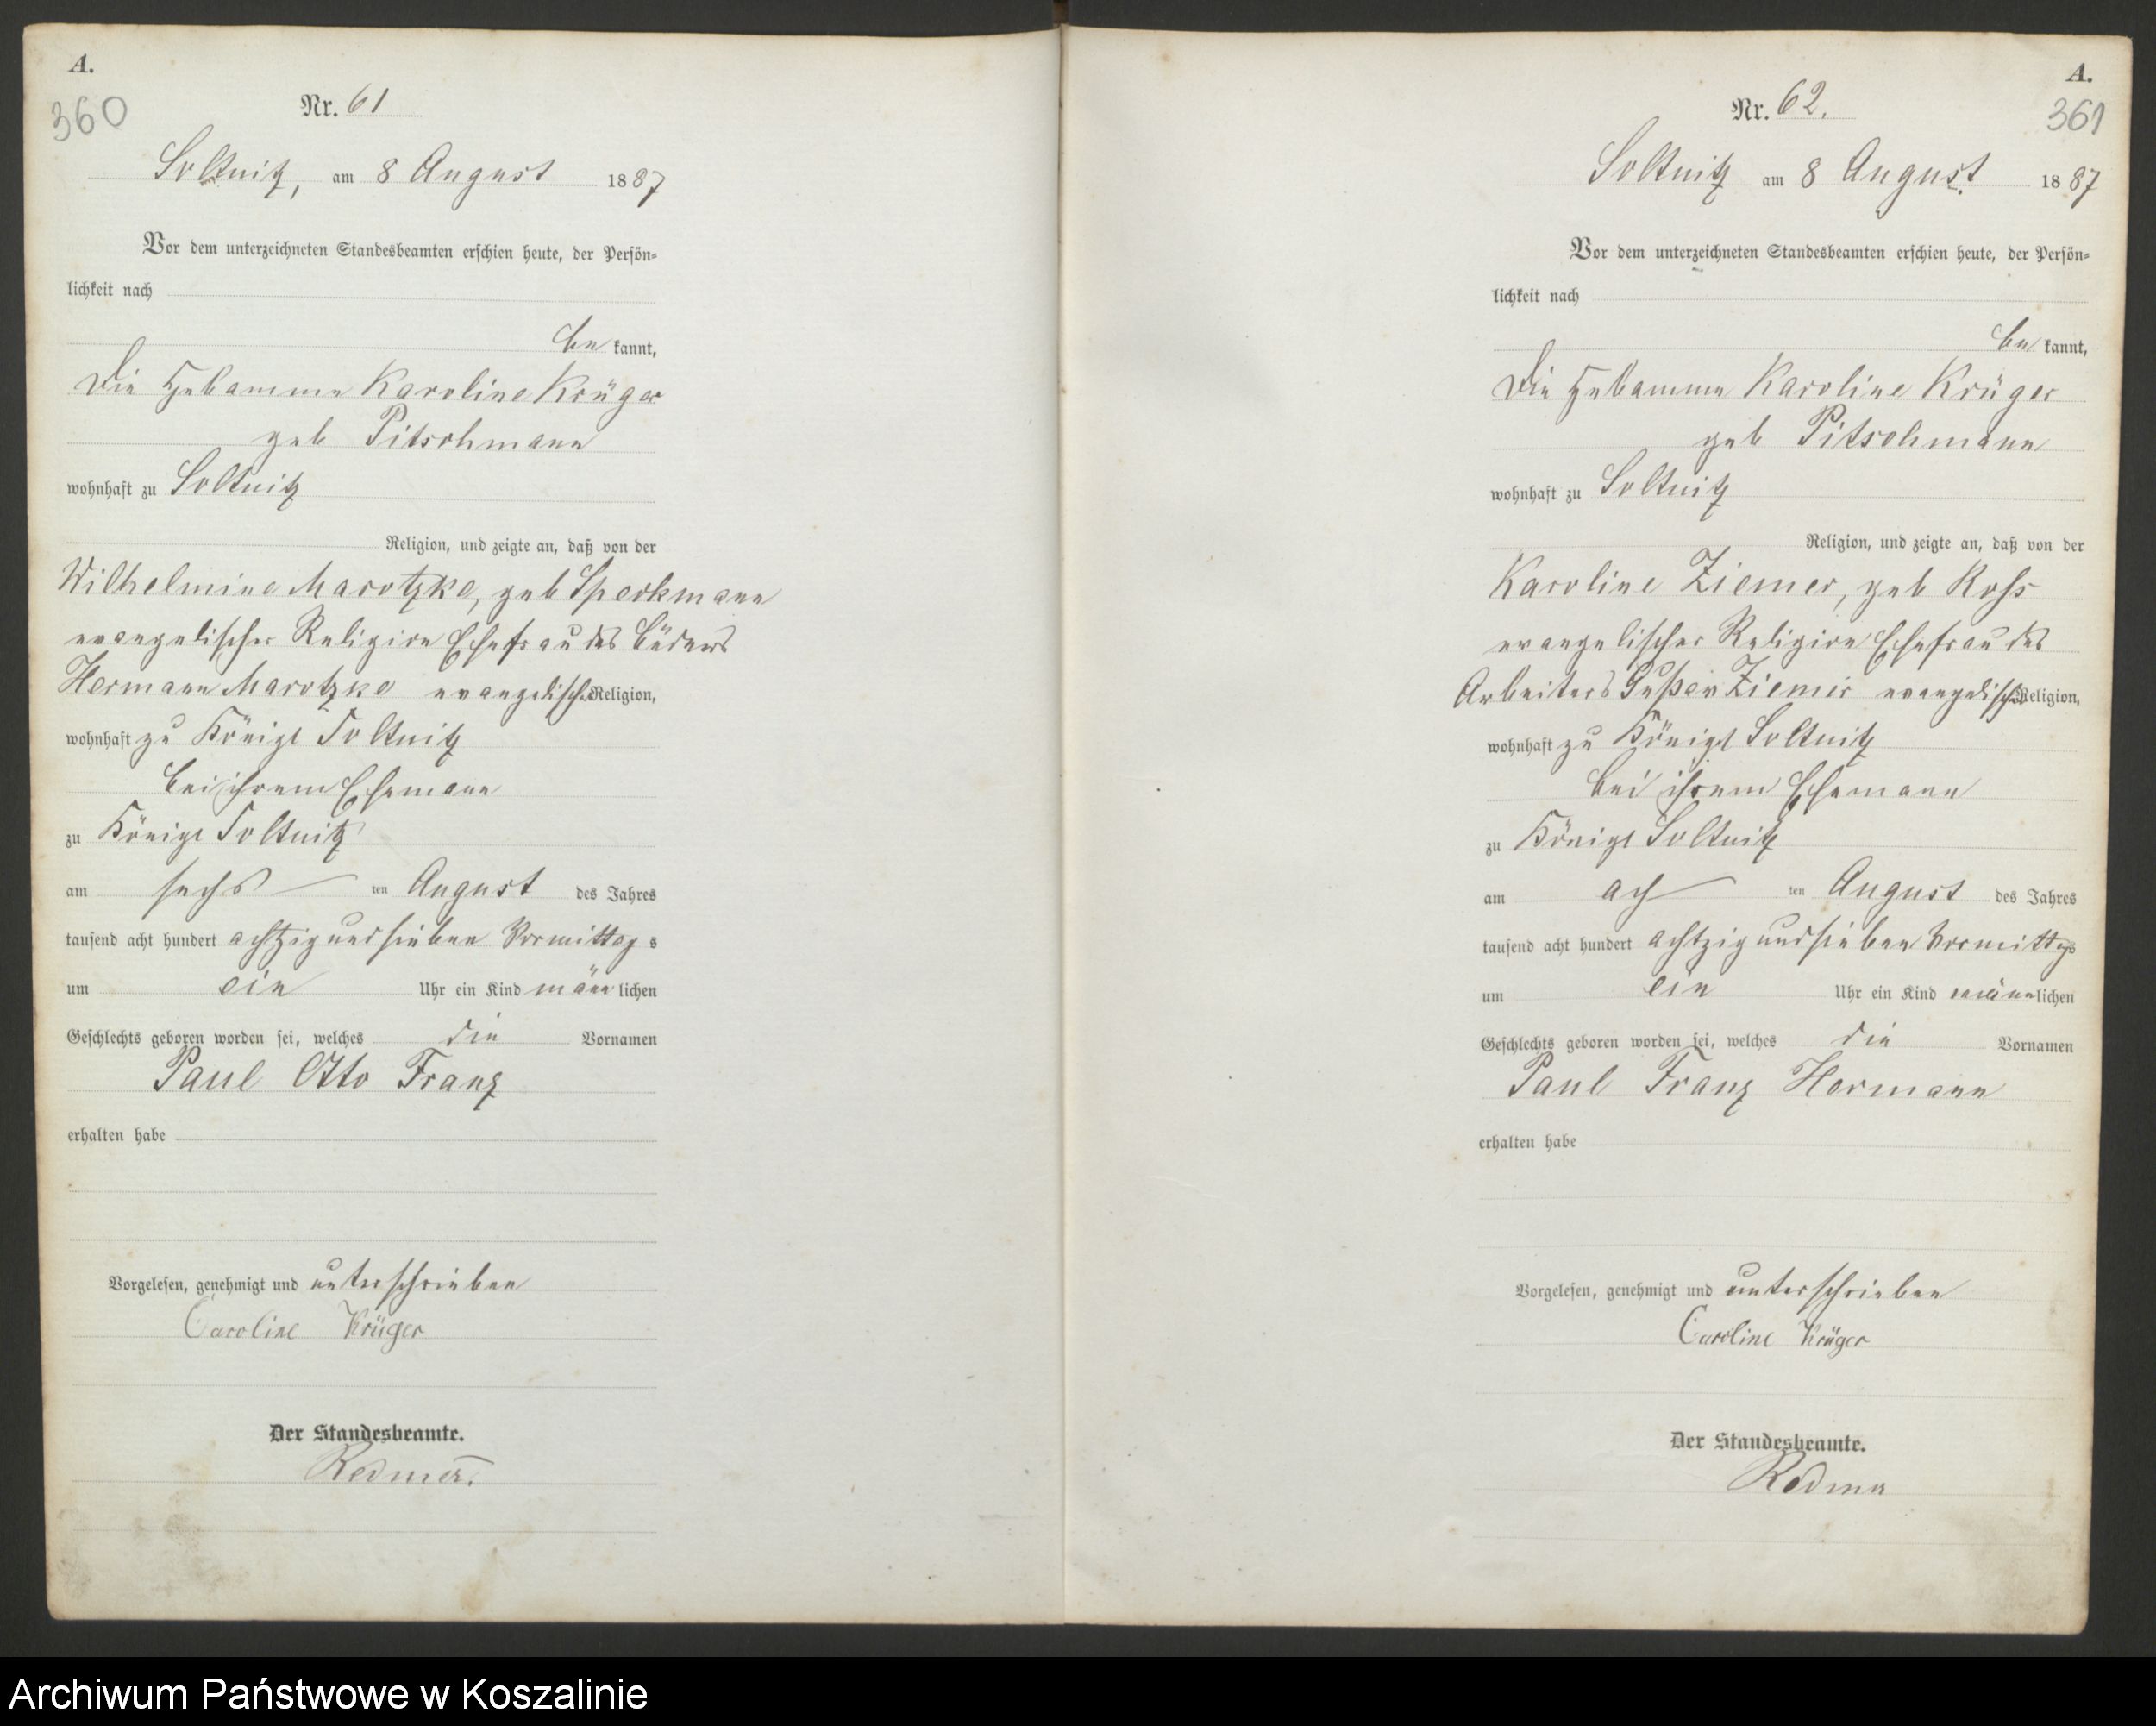 A.
360
Nr. 61
Soltnitz, am 8 August 1887
Vor dem unterzeichneten Standesbeamten erschien heute, der Persön-
lichkeit nach
be kannt,
die Hebamme Karoline Krüger
geb Pitschmann
wohnhaft zu Soltnitz
Religion, und zeigte an, daß von der
Wilhelmine Marotzke, geb Speckmann
evangelischer Religion Ehefrau des
Hermann Marotzke evangelischer Religion,
wohnhaft zu Königl Soltnitz
bei ihrem Ehemann
zu Königl Soltnitz
am sechs ten August des Jahres
tausend acht hundert achtzig und sieben Vormittag s
um ein Uhr ein Kind männ lichen
Geschlechts geboren worden sei, welches die Vornamen
Paul Otto Franz
erhalten habe
Vorgelesen, genehmigt und unterschrieben
Caroline Krüger
Der Standesbeamte.
Redmer.
A.
361
Nr. 62.
Soltnitz am 8 August. 1887
Vor dem unterzeichneten Standesbeamten erschien heute, der Persön-
lichkeit nach
be kannt,
die Hebamme Karoline Krüger
geb Pitschmann
wohnhaft zu Soltnitz
Religion, und zeigte an, daß von der
Karoline Ziemer, geb Ross
evangelischer Religion Ehefrau des
Arbeiters Gustav Ziemer evangelischer Religion,
wohnhaft zu Königl Soltnitz
bei ihrem Ehemann
zu Königl Soltnitz
am ach ten August des Jahres
tausend acht hundert achtzig und sieben Vormittags
um ein Uhr ein Kind männlichen
Geschlechts geboren worden sei, welches die Vornamen
Paul Franz Hermann
erhalten habe
Vorgelesen, genehmigt und unterschrieben
Caroline Krüger
Der Standesbeamte.
Redmer
Archiwum Państwowe w Koszalinie